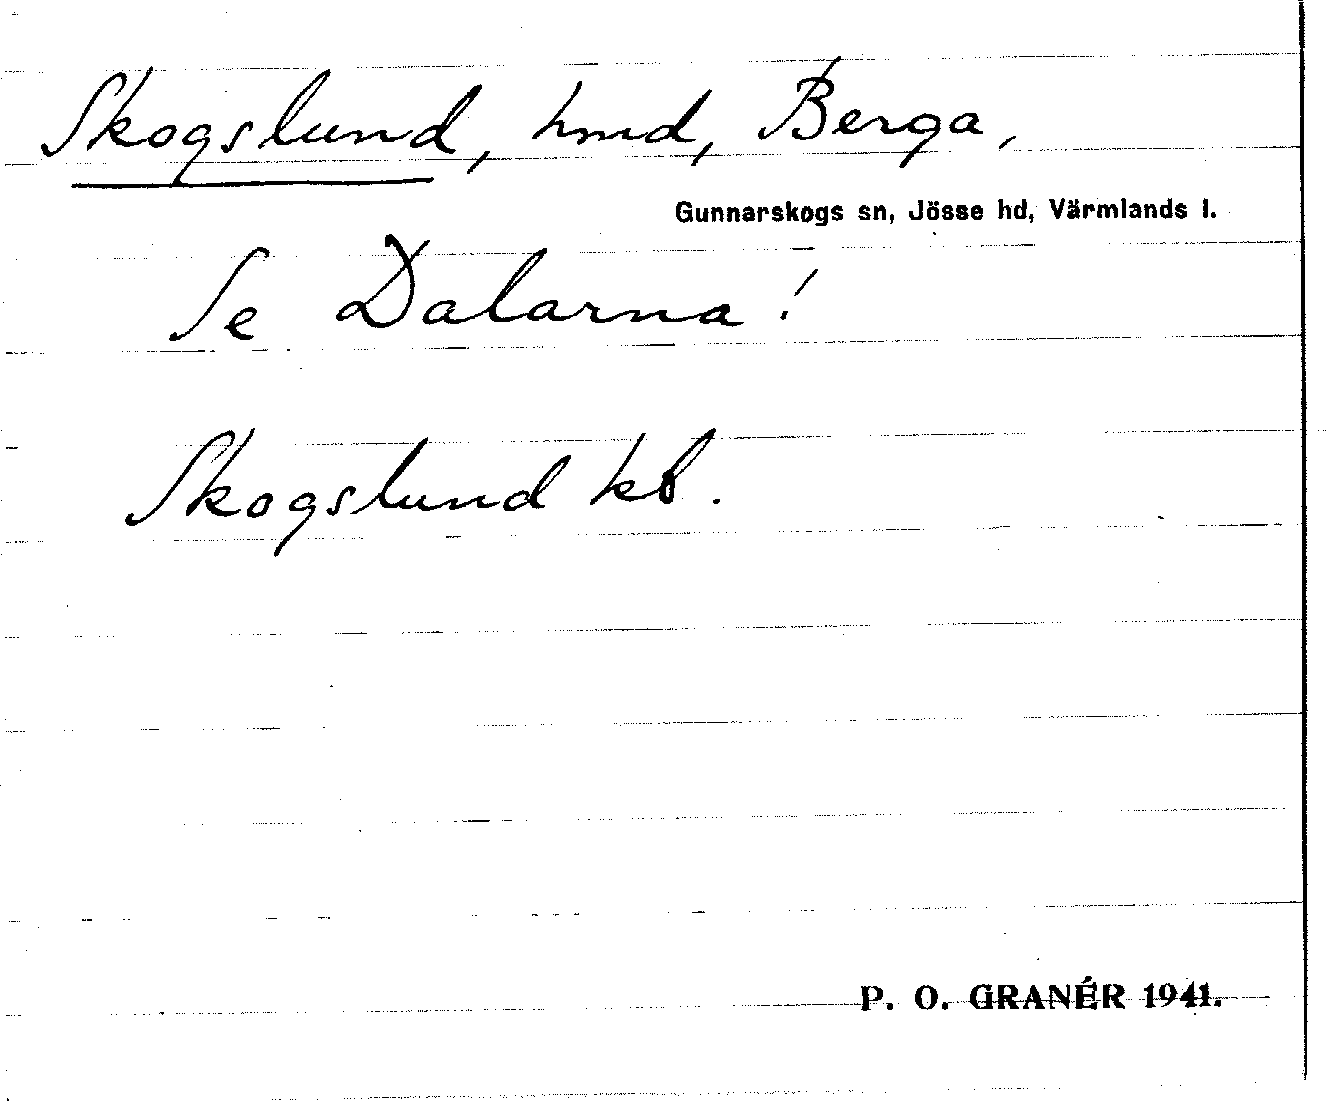 Skogslund, hmd, Berga,
Gunnarskogs sn, Jösse hd, Värmlands l.
Se Dalarna!
Skogslund kb.
P. O. GRANÉR 1941.